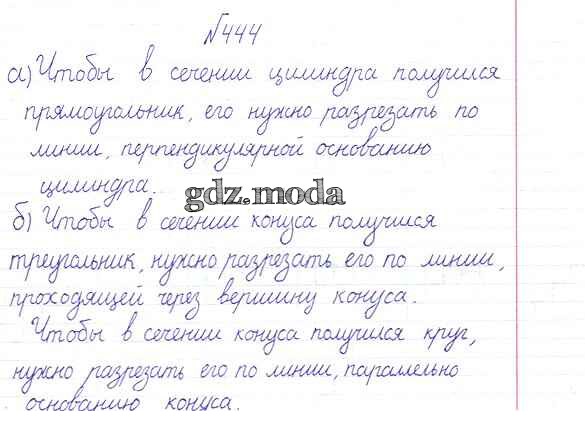 №444
а) Чтобы в сечении цилиндра получился
прямоугольник, его нужно разрезать по
линии, перпендикулярной основанию
цилиндра.
gdz.moda
б) Чтобы в сечении конуса получился
треугольник, нужно разрезать его по линии,
проходящей через вершину конуса.
Чтобы в сечении конуса получился круг,
нужно разрезать его по линии, параллельно
основанию конуса.